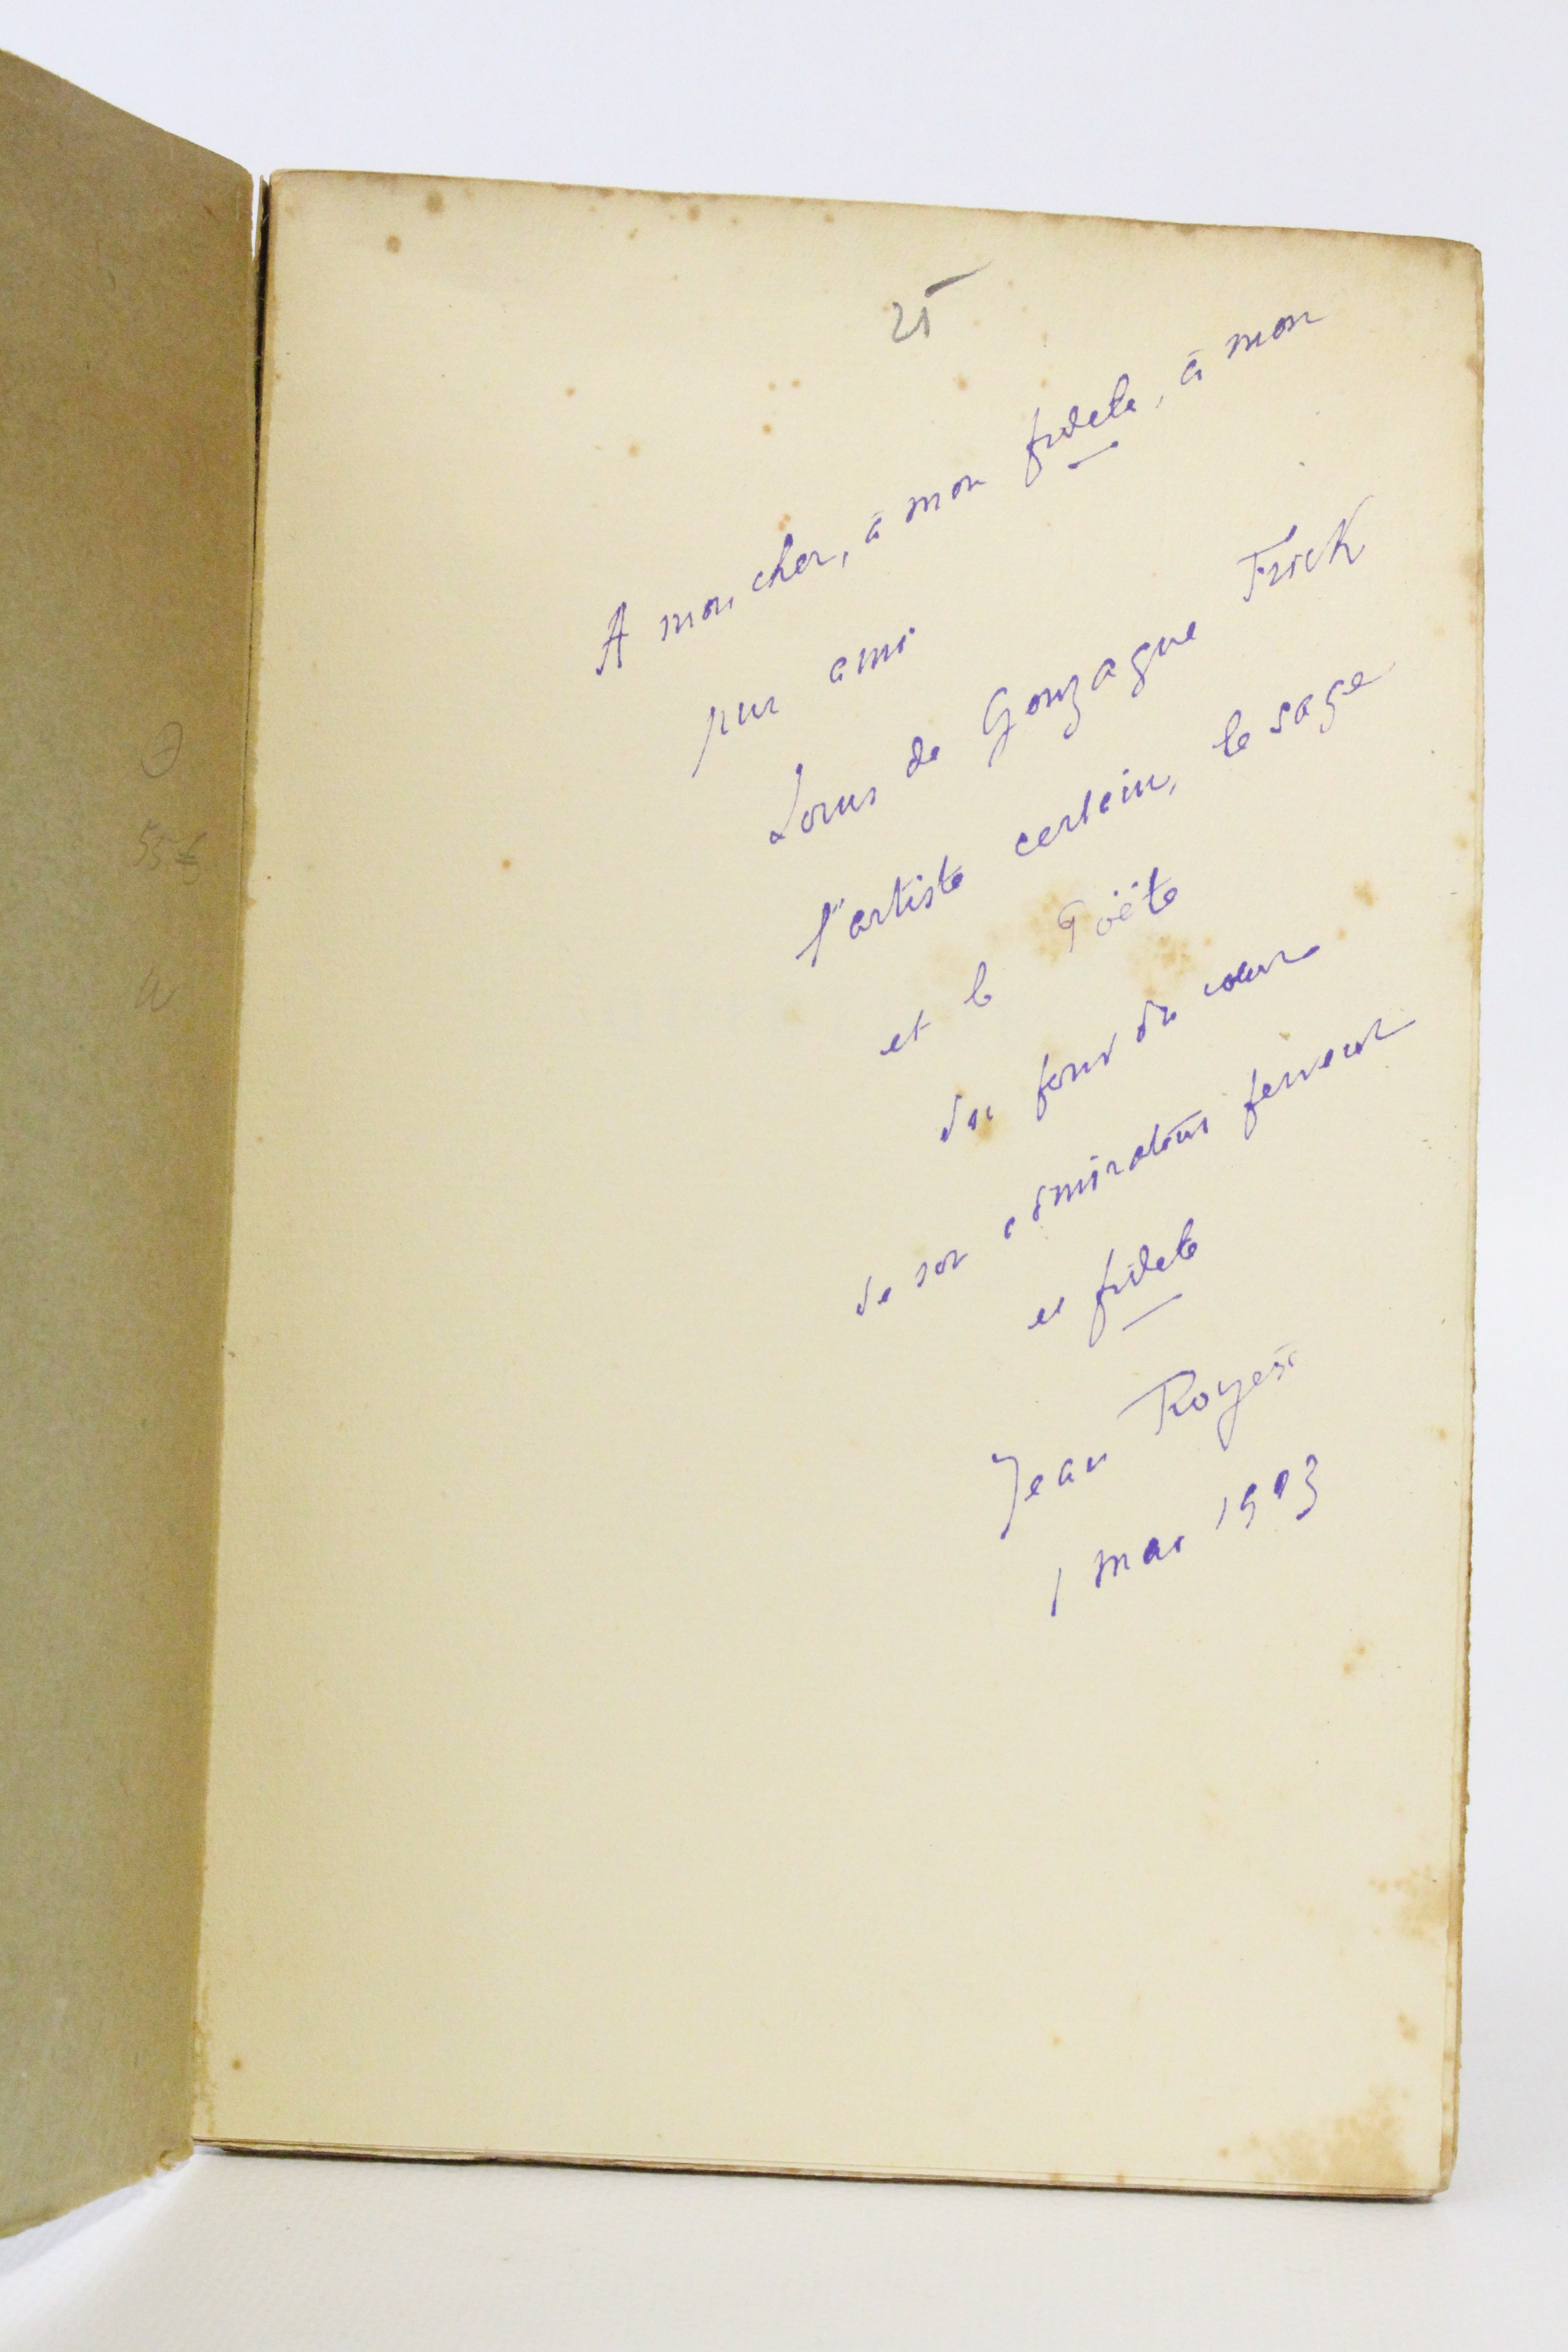 25
A mon cher, à mon fidele, à mon
pur ami
Louis de Gonzague Frick
l'artiste certain, le sage
et le Poëte
du fond du coeur
de son admiration ferveur
et fidele
Jean Royère
1 mai 1903
55 €
a